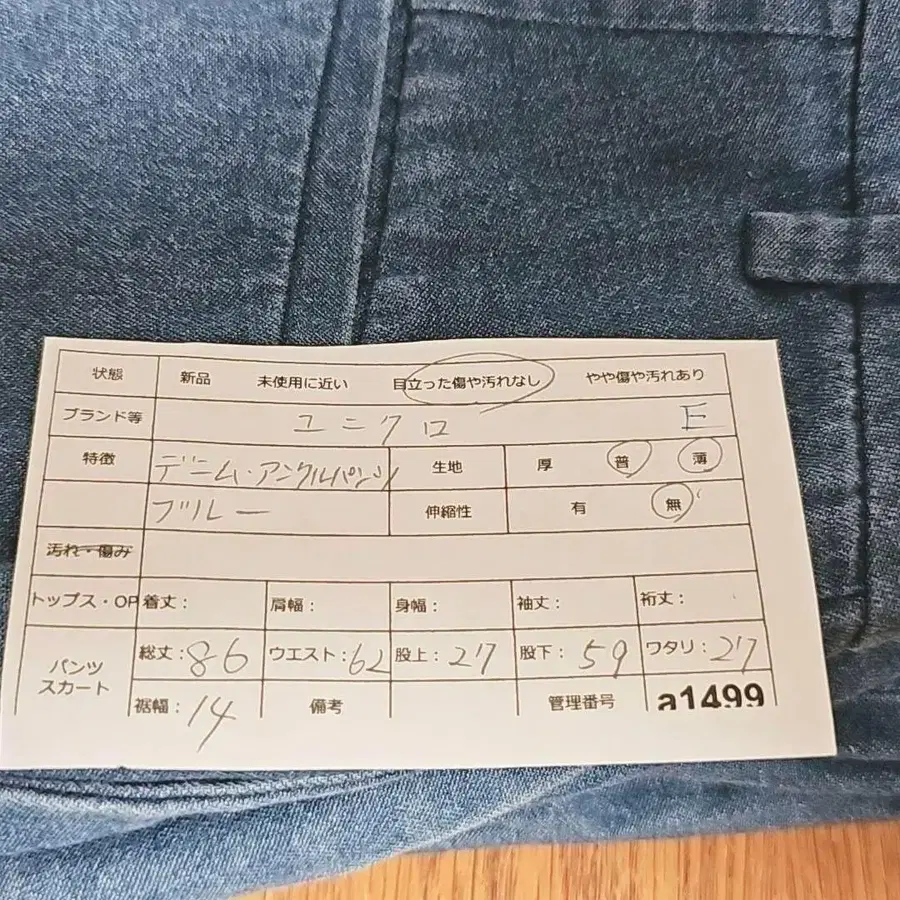 状態 新品 未使用に近い 目立った傷や汚れなし やや傷や汚れあり
ブランド等 ユニクロ E
特徴 デニム・アンクルパンツ 生地 厚 普 薄
ブルー 伸縮性 有 無
汚れ・傷み
トップス・OP 着丈: 肩幅: 身幅: 袖丈: 裄丈:
パンツ スカート 総丈:86 ウエスト:62 股上:27 股下:59 ワタリ:27
裾幅:14 備考 管理番号 a1499